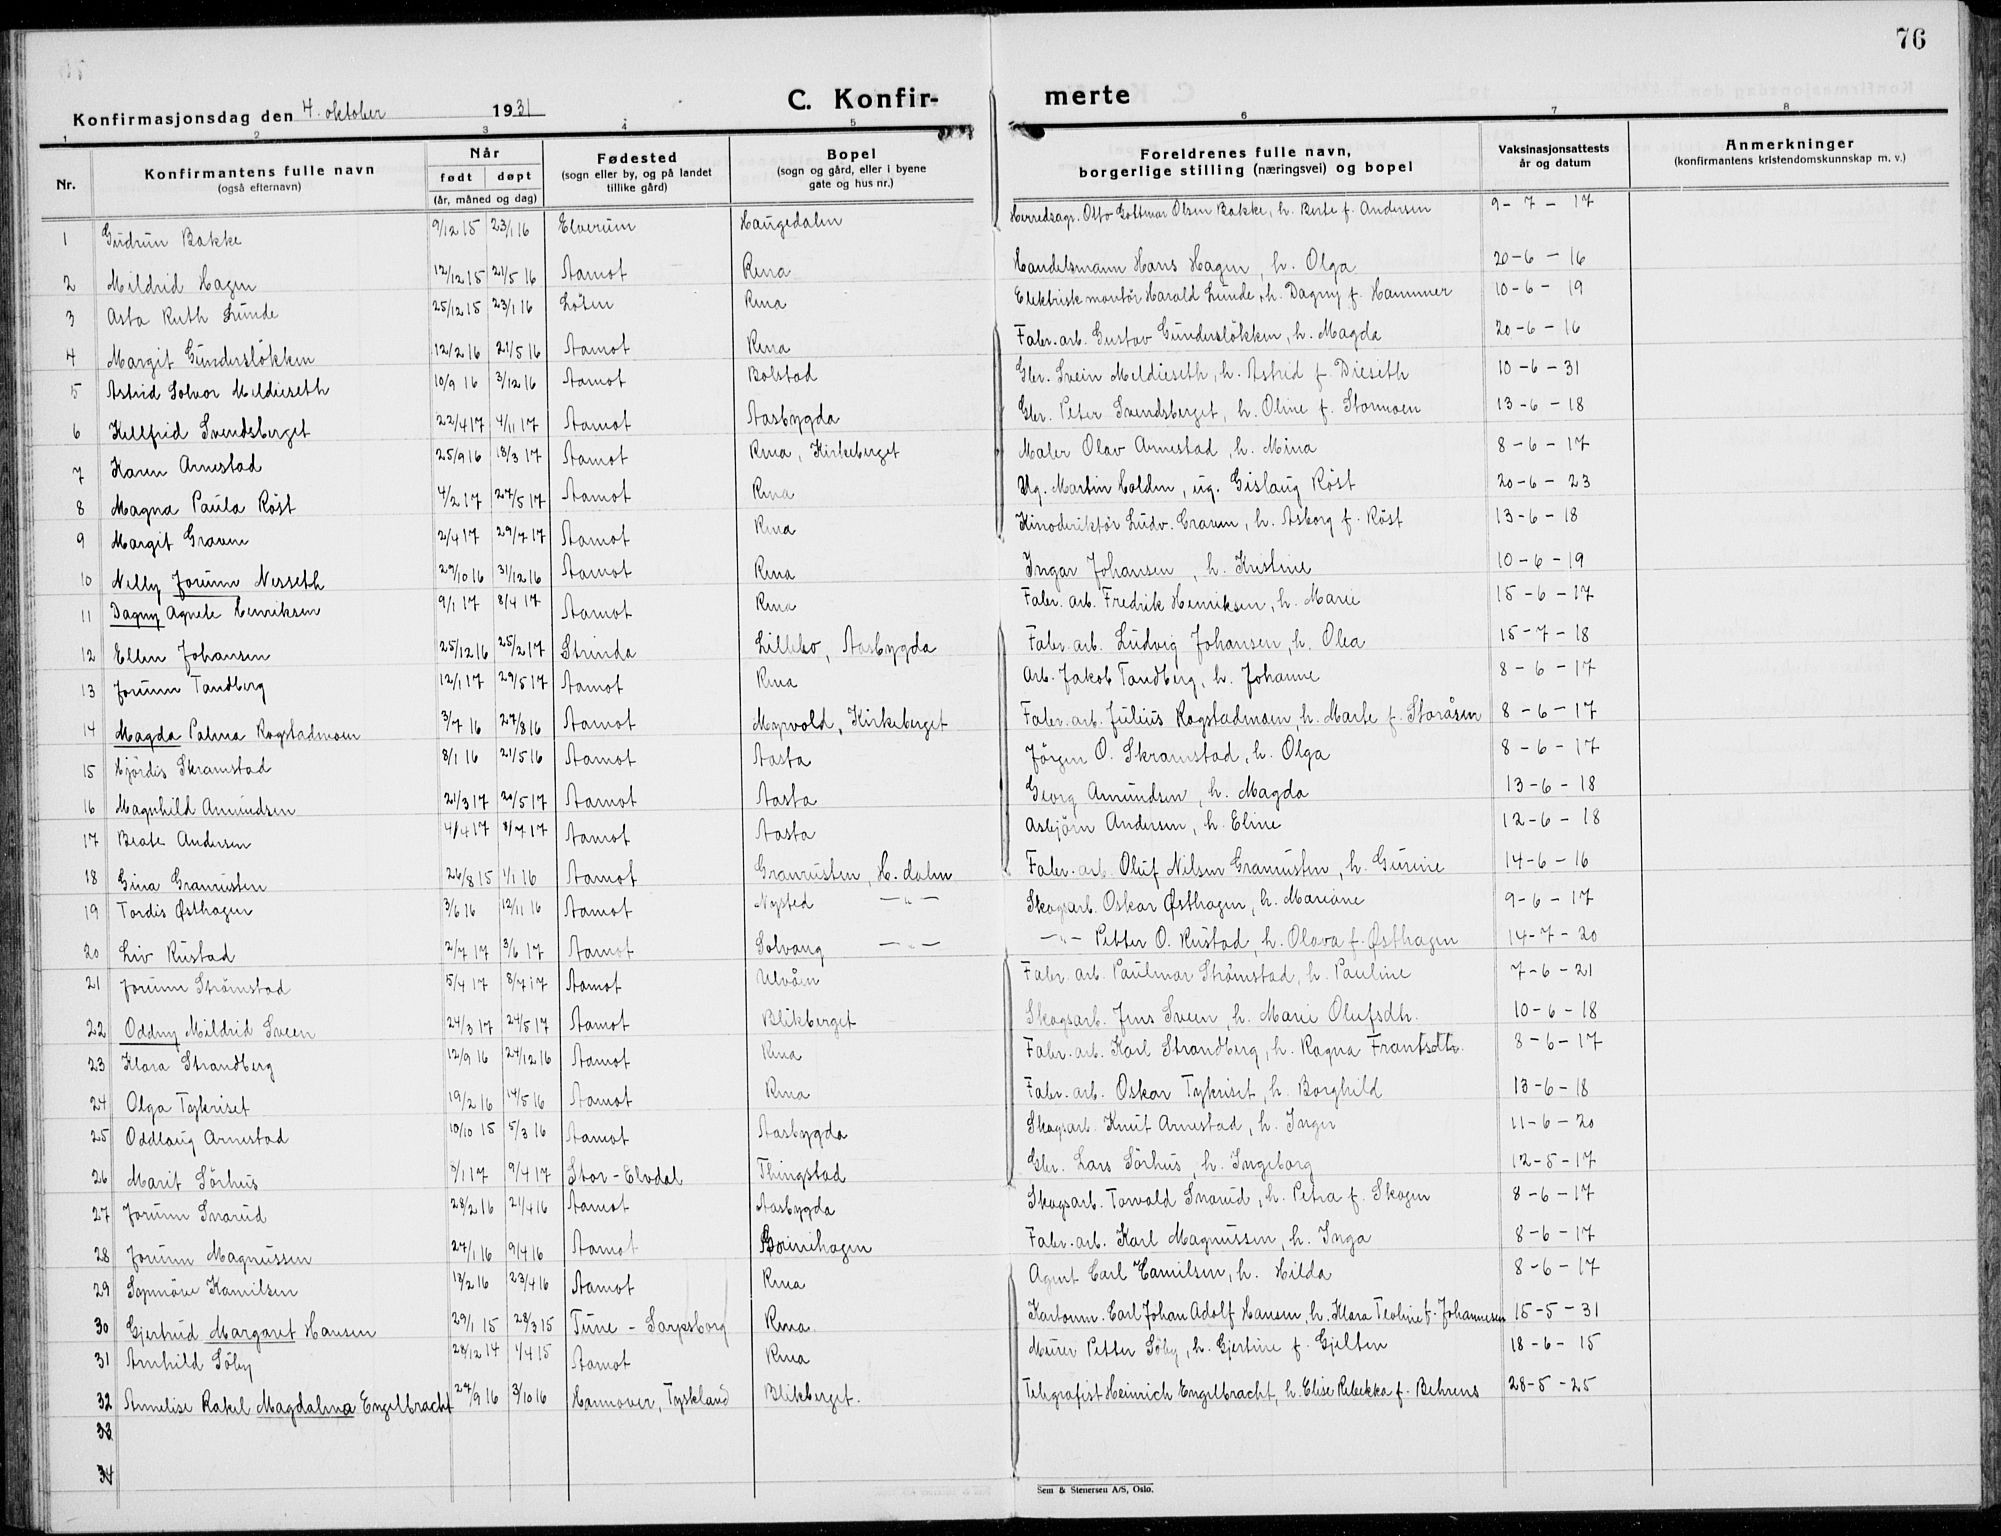 76
Konfirmasjonsdag den 4. oktober 1931 C. Konfir- merte
1 2 3 4 5 6 7 8
Nr. Konfirmantens fulle navn (også efternavn) Når født døpt (år, måned og dag) Fødested (sogn eller by, og på landet tillike gård) Bopel (sogn og gård, eller i byene gate og hus nr.) Foreldrenes fulle navn, borgerlige stilling (næringsvei) og bopel Vaksinasjonsattests år og datum Anmerkninger (konfirmantens kristendomskunnskap m. v.)
1 Gudrun Bakke 9/12 15 23/1 16 Elverum Haugedalen Herredsagr. Otto Gottmar Olsen Bakke, h. Berte f. Andersen 9-7-17
2 Mildrid Hagen 12/12 15 21/5 16 Aamot Rena Handelsmann Hans Hagen, h. Olga 20-6-16
3 Asta Ruth Lunde 25/12 15 23/1 16 Löten Rena Elektrisk montör Harald Lunde, h. Dagny f. Hammer 10-6-19
4 Margit Gunderslökken 12/2 16 21/5 16 Aamot Rena Fabr. arb. Gustav Gunderslökken, h. Magda 20-6-16
5 Astrid Solvor Meldieseth 10/9 16 3/12 16 Aamot Bolstad Gbr. Svein Meldieseth, h. Astrid f. Dieseth 10-6-31
6 Kellfrid Svendsberget 22/4 17 4/11 17 Aamot Aasbygda Gbr. Peter Svendsberget, h. Oline f. Stormoen 13-6-18
7 Karen Arnestad 25/9 16 18/3 17 Aamot Rena, Kirkeberget Maler Olav Arnestad, h. Mina 8-6-17
8 Magna Paula Röst 4/2 17 27/5 17 Aamot Rena Ug. Martin Holden, ug. Gislaug Röst 20-6-23
9 Margit Graven 2/4 17 29/7 17 Aamot Rena Kinodirektör Ludv. Graven, h. Asborg f. Röst 13-6-18
10 Nelly Jorunn Nesseth 29/10 16 31/12 16 Aamot Rena Ingar Johansen, h. Kristine 10-6-19
11 Dagny Agnete Henriksen 9/1 17 8/4 17 Aamot Rena Fabr. arb. Fredrik Henriksen, h. Marie 15-6-17
12 Ellen Johansen 25/12 16 25/2 17 Strinda Lillebo, Aasbygda Fabr. arb. Ludvig Johansen, h. Olea 15-7-18
13 Jorunn Tandberg 12/1 17 29/5 17 Aamot Rena Arb. Jakob Tandberg, h. Johanne 8-6-17
14 Magda Palma Rogstadmoen 3/7 16 27/8 16 Aamot Myrvold, Kirkeberget Fabr. arb. Julius Rogstadmoen, h. Marte f. Storåsen 8-6-17
15 Hjördis Skramstad 8/1 16 21/5 16 Aamot Aasta Jörgen O. Skramstad, h. Olga 8-6-17
16 Magnhild Amundsen 21/3 17 20/5 17 Aamot Aasta Georg Amundsen, h. Magda 13-6-18
17 Beate Andersen 4/4 17 8/7 17 Aamot Aasta Asbjörn Andersen, h. Eline 12-6-18
18 Gina Granrusten 26/8 15 1/1 16 Aamot Granrusten, H. dalen Fabr. arb. Oluf Nilsen Granrusten, h. Gurine 14-6-16
19 Tordis Østhagen 3/6 16 12/11 16 Aamot Nysted -"- Skogsarb. Oskar Østhagen, h. Mariane 9-6-17
20 Liv Rustad 2/7 17 3/6 17 Aamot Solvang -"- -"- Petter O. Rustad, h. Olava f. Østhagen 14-7-20
21 Jorunn Strömstad 5/4 17 8/7 17 Aamot Ulvåen Fabr. arb. Paulmar Strömstad, h. Pauline 7-6-21
22 Oddny Mildrid Sveen 24/3 17 24/5 17 Aamot Blikberget Skogsarb. Jens Sveen, h. Marie Olufsdh. 10-6-18
23 Klara Strandberg 12/9 16 24/12 16 Aamot Rena Fabr. arb. Karl Strandberg, h. Ragna Frantsdtr. 8-6-17
24 Olga Tykriset 19/2 16 14/5 16 Aamot Rena Fabr. arb. Oskar Tykriset, h. Borghild 13-6-18
25 Oddlaug Arnestad 10/10 15 5/3 16 Aamot Aasbygda Skogsarb. Knut Arnestad, h. Inger 11-6-20
26 Marit Sörhus 9/4 17 Stor-Elvdal Thingstad Gbr. Lars Sörhus, h. Ingeborg 12-5-17
27 Jorunn Snarud 28/2 16 21/4 16 Aamot Aasbygda Skogsarb. Torvald Snarud, h. Petra f. Skogen 8-6-17
28 Jorunn Magnussen 27/1 16 9/4 16 Aamot Fabr. arb. Karl Magnussen, h. Inga 8-6-17
29 Synnöve Kamilsen 13/2 16 23/4 16 Aamot Rena Agent Carl Camilsen, h. Hilda 8-6-17
30 Gjertrud Margaret Hansen 29/1 15 28/3 15 Tune - Sarpsborg Rena. Kartonm. Carl Johan Adolf Hansen, h. Klara Teoline f. Johannesen 15-5-31
31 Arnhild Söby 28/12 14 1/4 15 Aamot Rena Murer Petter Söby, h. Gjertine f. Gjelten 18-6-15
32 Annelise Rakel Magdalena Engelbracht 27/9 16 3/10 16 Hannover, Tyskland Blikberget. Telegrafist Heinrich Engelbracht, h. Elise Rebekka f. Behrens 28-5-25
33
34
Sem & Stenersen A/S, Oslo.